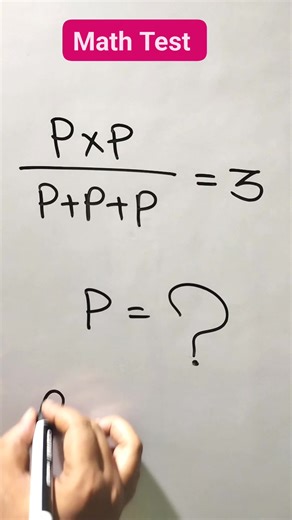 Math Test
P×P
P+P+P = 3
P = ?